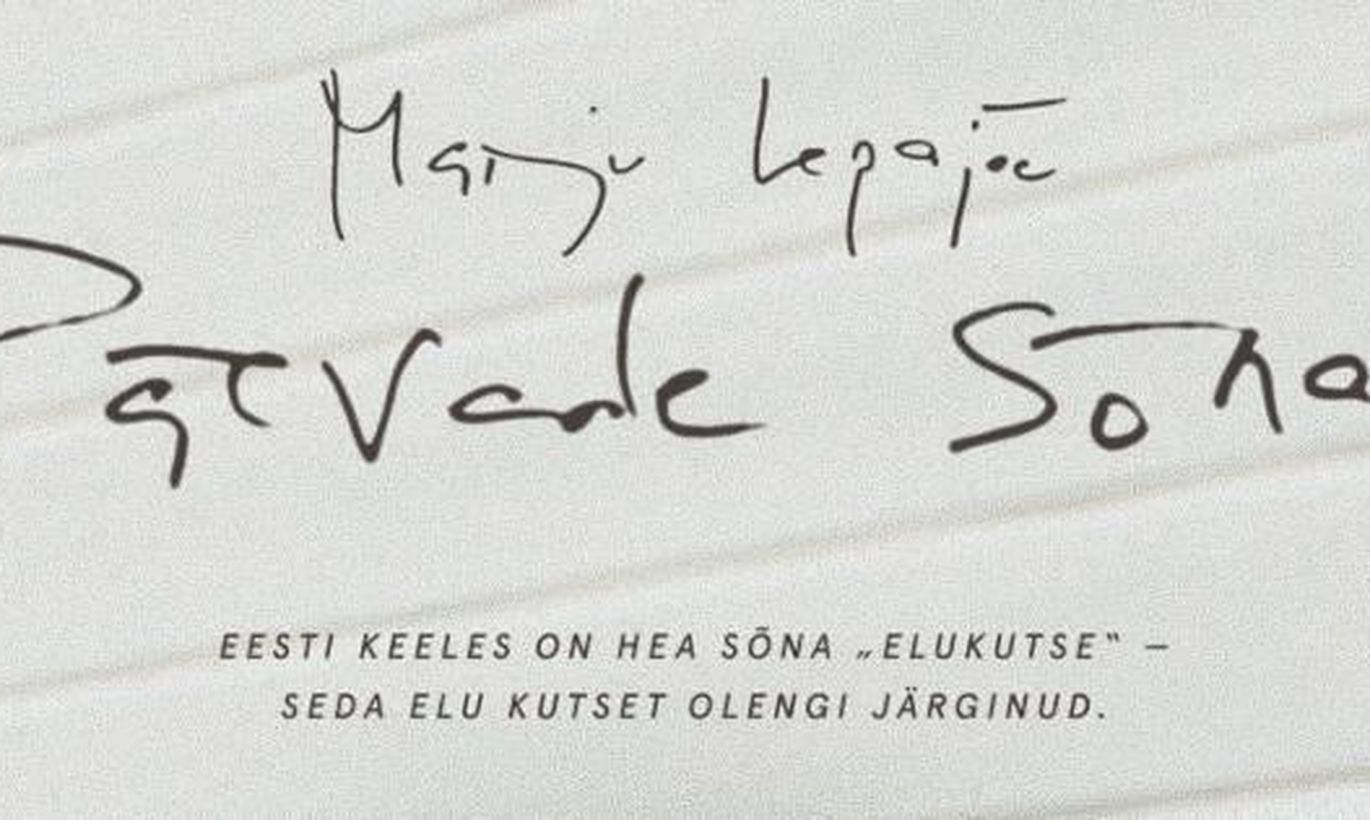 Marju Lepajõe
Päevade Sõna
EESTI KEELES ON HEA SÕNA „ELUKUTSE“ –
SEDA ELU KUTSET OLENGI JÄRGINUD.